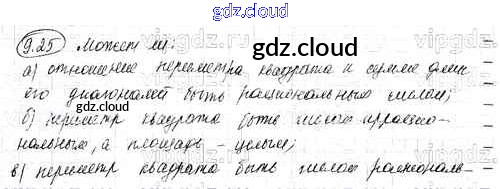 gdz.cloud
9.25 Может ли:
gdz.cloud
а) отношение периметра квадрата к сумме длин
его диагоналей быть рациональным числом;
б) периметр квадрата быть числом иррацио-
нальным, а площадь - целым;
в) периметр квадрата быть числом рациональ-
gdz.cloud